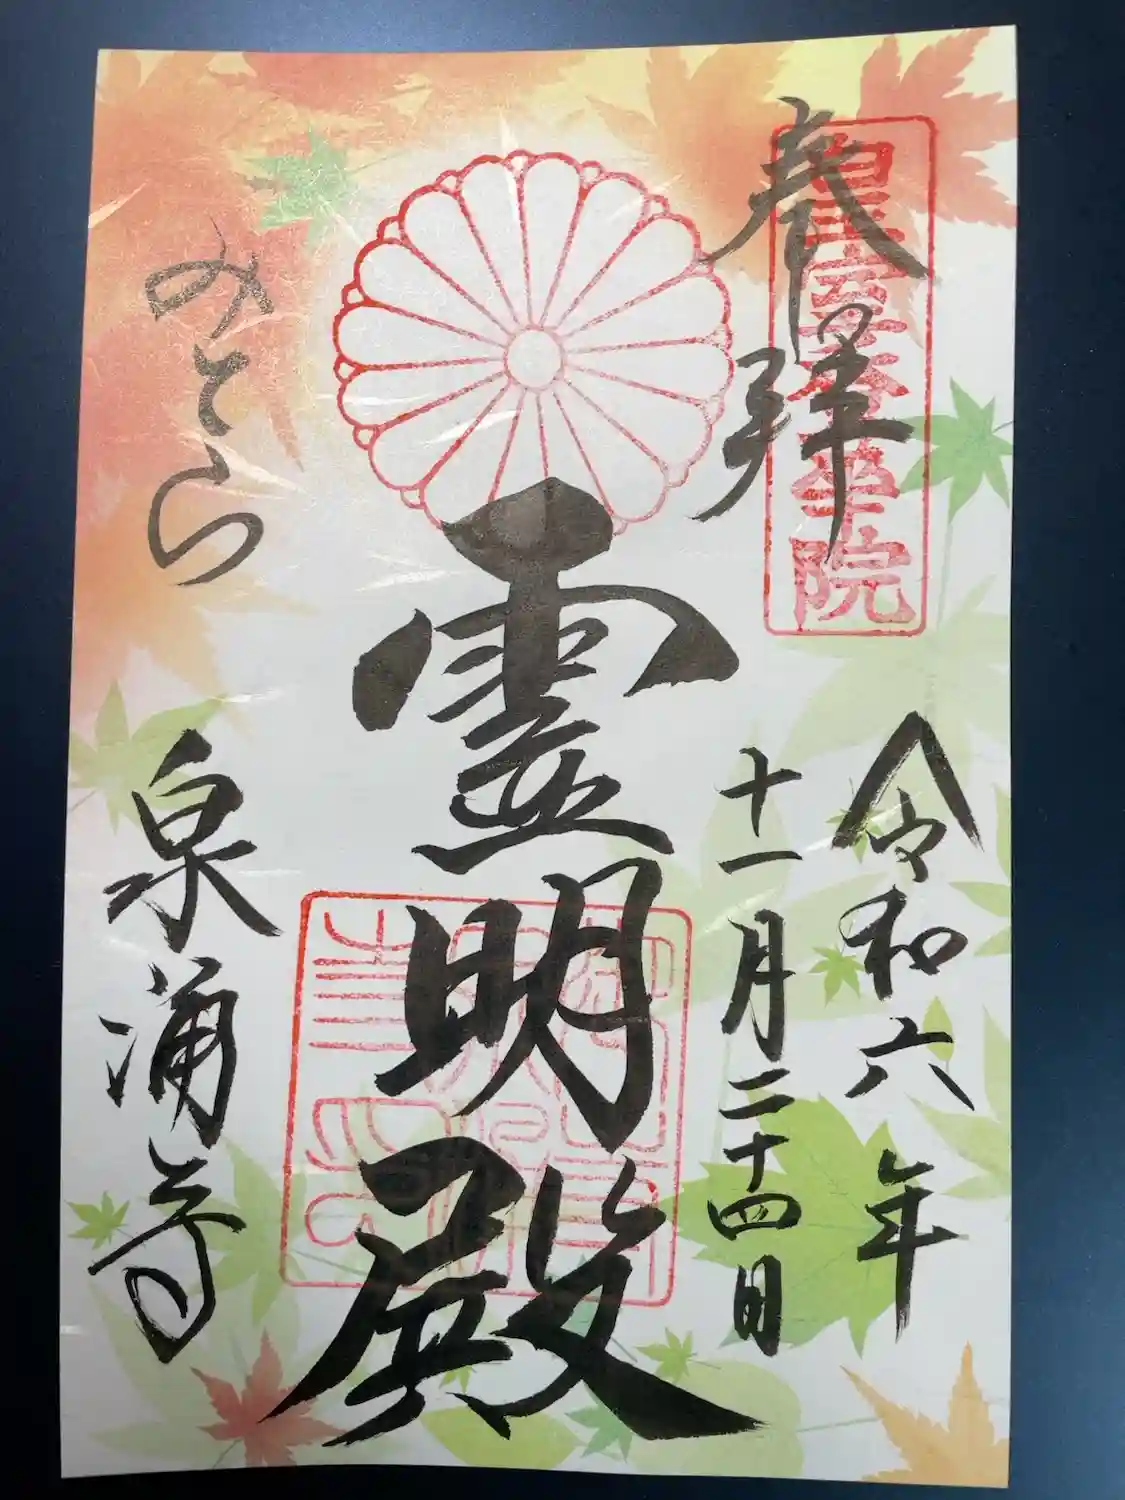 奉拝
皇室香華院
令和六年
十一月二十四日
霊明殿
みてら
泉涌寺